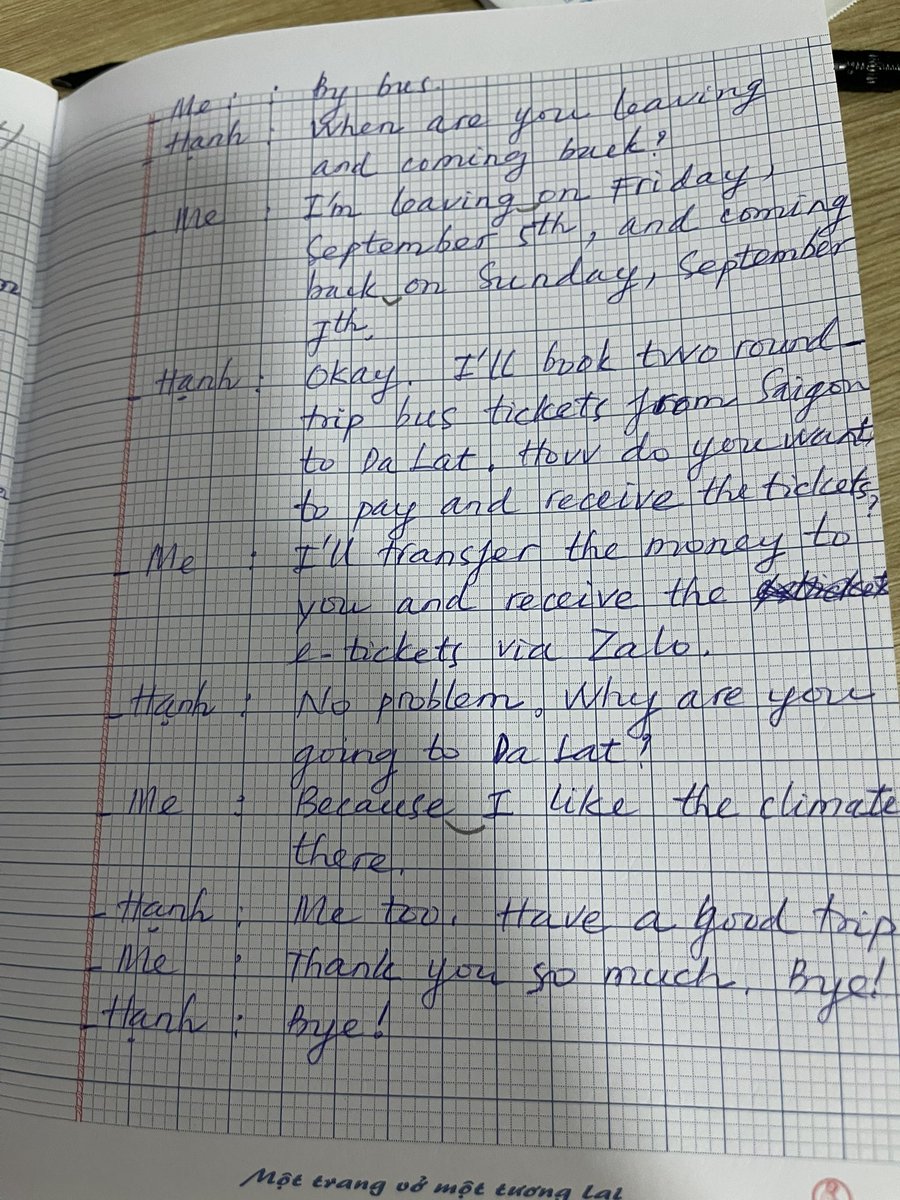 - Me : : By bus.
- Hạnh : When are you leaving
and coming back?
- Me : I'm leaving on Friday,
September 5th, and coming
back on Sunday, September
7th.
- Hạnh : Okay. I'll book two round-
trip bus tickets from Saigon
to Da Lat. How do you want
to pay and receive the tickets?
- Me : I'll transfer the money to
you and receive the
e-tickets via Zalo.
- Hạnh : No problem. Why are you
going to Da Lat?
- Me : Because I like the climate
there.
- Hạnh : Me too. Have a good trip
- Me : Thank you so much. Bye!
- Hạnh : Bye!
Một trang vở một tương lai